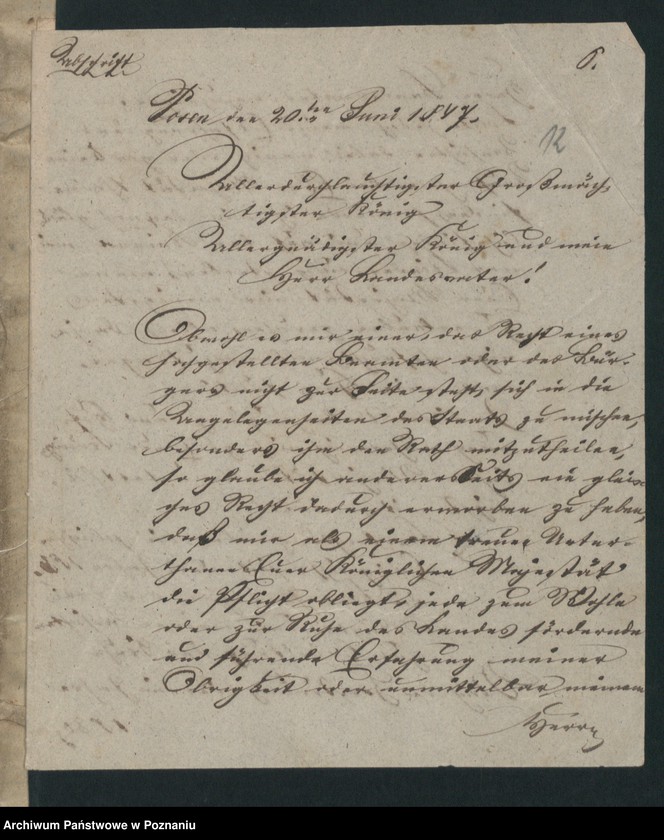 Abschrift
6.
Posen den 20ten Juni 1847.
12
Allerdurchlauchtigster Großmäch-
tigster König
Allergnädigster König und mein
Herr Landesvater!
Obwohl es mir einer das Recht eines
hochgestellten Beamten oder des Bür-
gers nicht zur Seite steht, sich in die
Angelegenheiten des Staats zu mischen,
besonders ihm den Rath mitzutheilen,
so glaube ich anderer Seits ein glei-
ches Recht dadurch erworben zu haben,
daß mir als einem treuen Unter-
thanen Euer Königlichen Majestät
die Pflicht obliegt, jede zum Wohle
oder zur Ruhe des Landes fördernde
und führende Erfahrung meiner
Obrigkeit oder unmittelbar meinem
Herrn
Archiwum Państwowe w Poznaniu